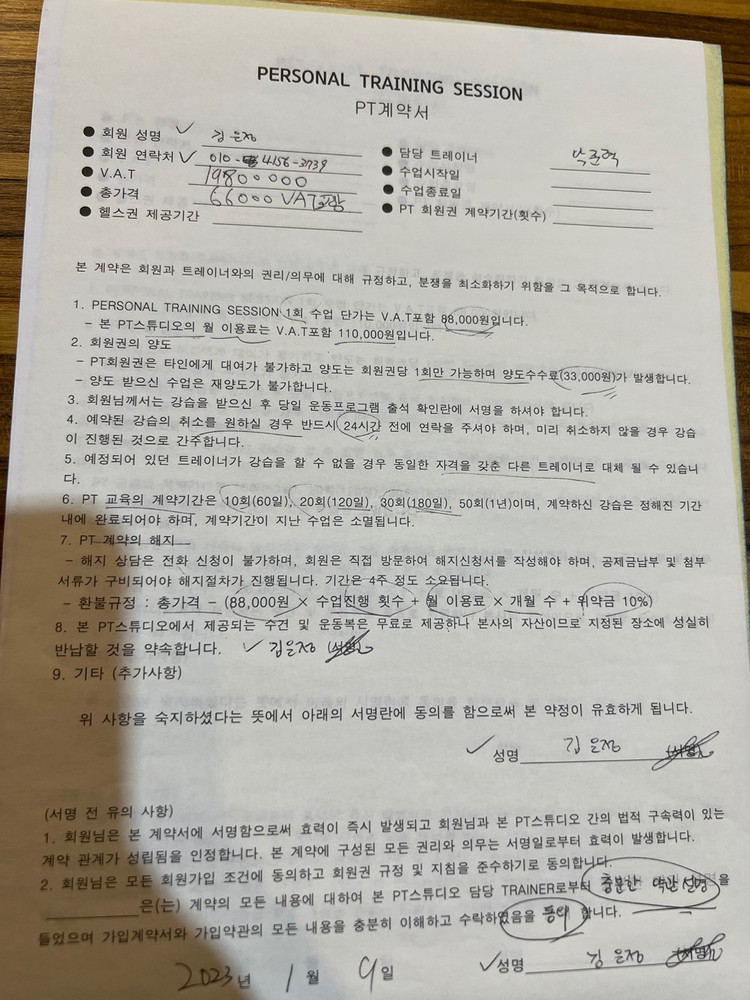 PERSONAL TRAINING SESSION
PT계약서
● 회원 성명 ✓ 김은정
● 회원 연락처 ✓ 010-4156-3739
● V.A.T 1980000
● 총가격 66000 VAT포함
● 헬스권 제공기간
● 담당 트레이너
● 수업시작일
● 수업종료일
● PT 회원권 계약기간(횟수)
본 계약은 회원과 트레이너와의 권리/의무에 대해 규정하고, 분쟁을 최소화하기 위함을 그 목적으로 합니다.
1. PERSONAL TRAINING SESSION 1회 수업 단가는 V.A.T포함 88,000원입니다.
- 본 PT스튜디오의 월 이용료는 V.A.T포함 110,000원입니다.
2. 회원권의 양도
- PT회원권은 타인에게 대여가 불가하고 양도는 회원권당 1회만 가능하며 양도수수료(33,000원)가 발생합니다.
- 양도 받으신 수업은 재양도가 불가합니다.
3. 회원님께서는 강습을 받으신 후 당일 운동프로그램 출석 확인란에 서명을 하셔야 합니다.
4. 예약된 강습의 취소를 원하실 경우 반드시 24시간 전에 연락을 주셔야 하며, 미리 취소하지 않을 경우 강습
이 진행된 것으로 간주합니다.
5. 예정되어 있던 트레이너가 강습을 할 수 없을 경우 동일한 자격을 갖춘 다른 트레이너로 대체 될 수 있습니
다.
6. PT 교육의 계약기간은 10회(60일), 20회(120일), 30회(180일), 50회(1년)이며, 계약하신 강습은 정해진 기간
내에 완료되어야 하며, 계약기간이 지난 수업은 소멸됩니다.
7. PT 계약의 해지
- 해지 상담은 전화 신청이 불가하며, 회원은 직접 방문하여 해지신청서를 작성해야 하며, 공제금납부 및 첨부
서류가 구비되어야 해지절차가 진행됩니다. 기간은 4주 정도 소요됩니다.
- 환불규정 : 총가격 - (88,000원 × 수업진행 횟수 + 월 이용료 × 개월 수 + 위약금 10%)
8. 본 PT스튜디오에서 제공되는 수건 및 운동복은 무료로 제공하나 본사의 자산이므로 지정된 장소에 성실히
반납할 것을 약속합니다. ✓ 김은정 (서명)
9. 기타 (추가사항)
위 사항을 숙지하셨다는 뜻에서 아래의 서명란에 동의를 함으로써 본 약정이 유효하게 됩니다.
✓ 성명 김은정 (서명)
(서명 전 유의 사항)
1. 회원님은 본 계약서에 서명함으로써 효력이 즉시 발생되고 회원님과 본 PT스튜디오 간의 법적 구속력이 있는
계약 관계가 성립됨을 인정합니다. 본 계약에 구성된 모든 권리와 의무는 서명일로부터 효력이 발생합니다.
2. 회원님은 모든 회원가입 조건에 동의하고 회원권 규정 및 지침을 준수하기로 동의합니다.
은(는) 계약의 모든 내용에 대하여 본 PT스튜디오 담당 TRAINER로부터 충분한 약관 설명을
들었으며 가입계약서와 가입약관의 모든 내용을 충분히 이해하고 수락하였음을 동의 합니다.
2023년 1월 9일 ✓성명 김은정 (서명)